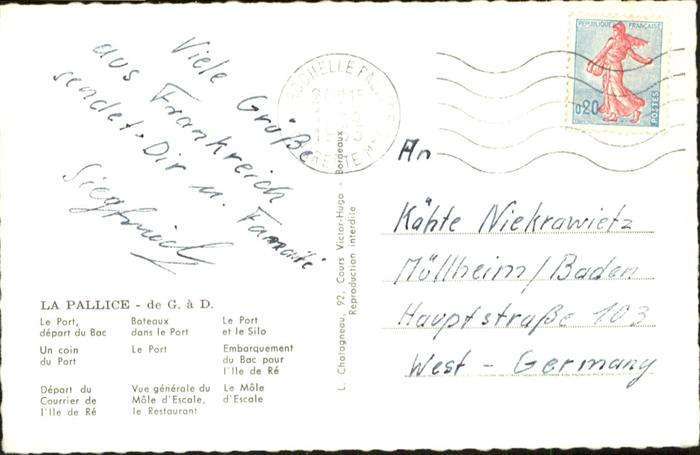 Viele Grüße
aus Frankreich
sendet Dir u. Familie
Siegfried
LA PALLICE - de G. à D.
Le Port,
départ du Bac
Bateaux
dans le Port
Le Port
et le Silo
Un coin
du Port
Le Port
Embarquement
du Bac pour
l'Ile de Ré
Départ du
Courrier de
l'Ile de Ré
Vue générale du
Môle d'Escale,
le Restaurant
Le Môle
d'Escale
L. Chatagneau, 92, Cours Victor-Hugo - Bordeaux
Reproduction interdite
REPUBLIQUE FRANÇAISE
0,20
POSTES
An
Kähte Niekrawietz
Müllheim/Baden
Hauptstraße 103
West - Germany